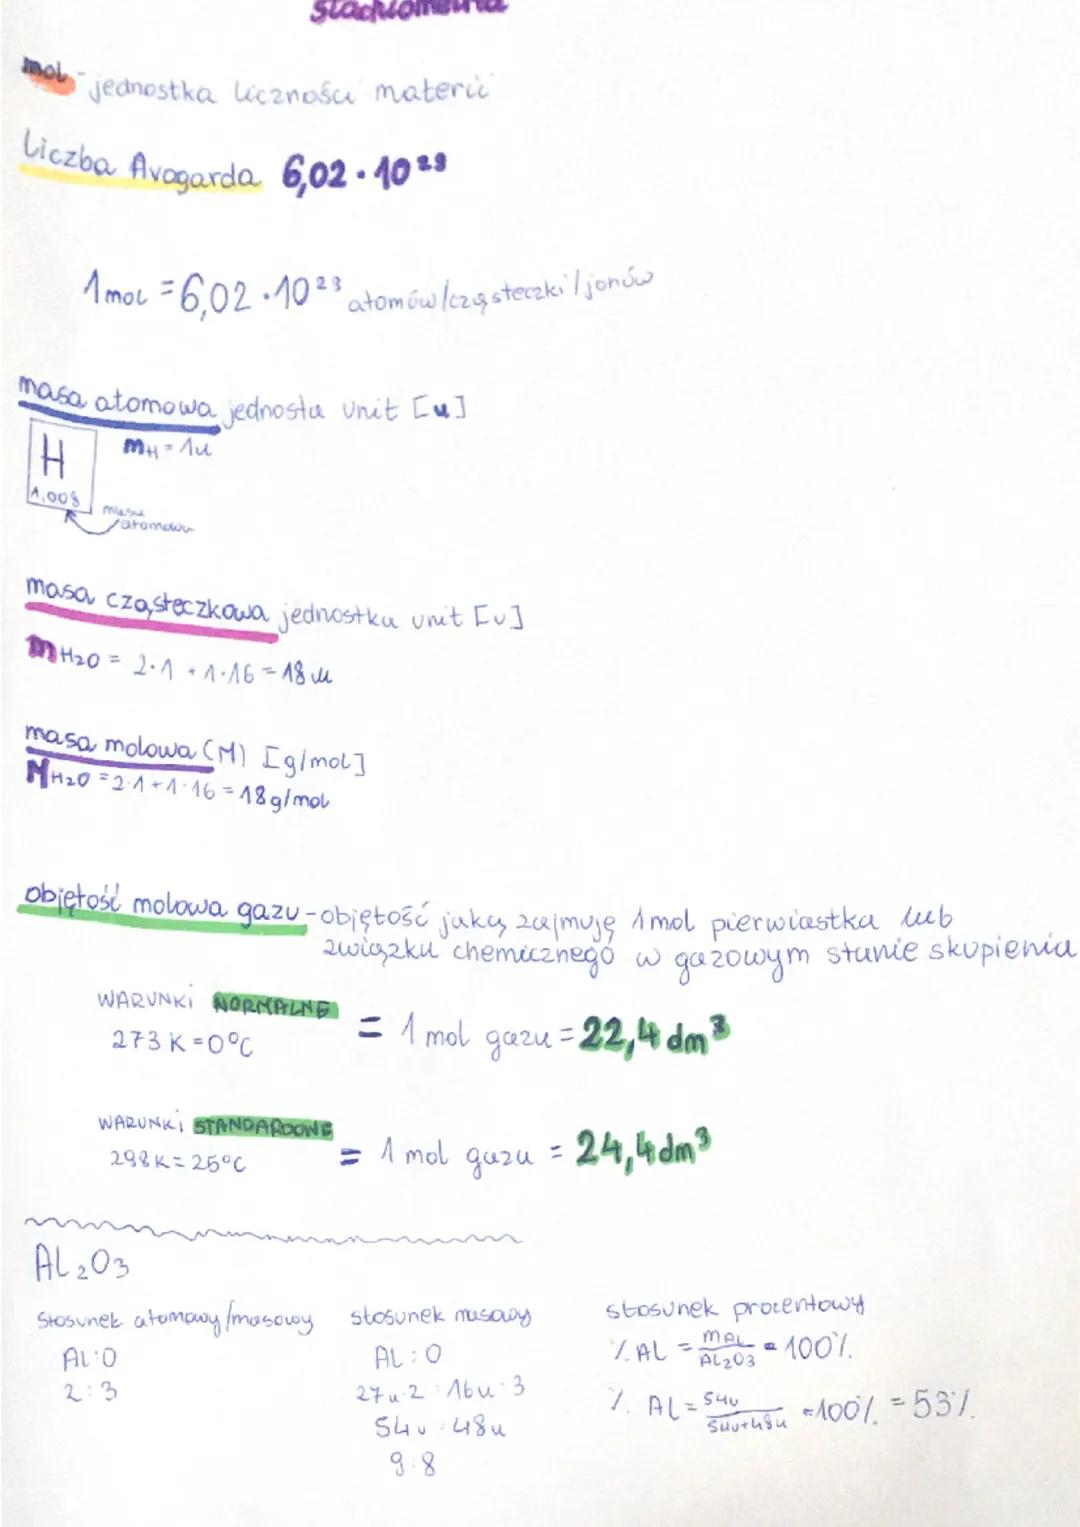 stechiometria
mol - jednostka liczności materii
Liczba Avogarda 6,02 · 10²³
1 mol = 6,02 · 10²³ atomów/cząsteczki/jonów
masa atomowa jednosta unit [u]
H
mH = 1u
1,008
masa
atomowa
masa cząsteczkowa jednostka unit [u]
mH₂O = 2·1 + 1·16 = 18 u
masa molowa (M) [g/mol]
MH₂O = 2·1 + 1·16 = 18 g/mol
objętość molowa gazu - objętość jaką zajmuję 1 mol pierwiastka lub
związku chemicznego w gazowym stanie skupienia
WARUNKI NORMALNE
273 K = 0°C
= 1 mol gazu = 22,4 dm³
WARUNKI STANDARDOWE
298K = 25°C
= 1 mol gazu = 24,4 dm³
Al₂O₃
stosunek atomowy/masowy
Al:O
2:3
stosunek masowy
Al : O
27u·2 : 16u·3
54u : 48u
9:8
stosunek procentowy
% Al = mAl / Al₂O₃ · 100%
% Al = 54u / 54u+48u · 100% = 53%